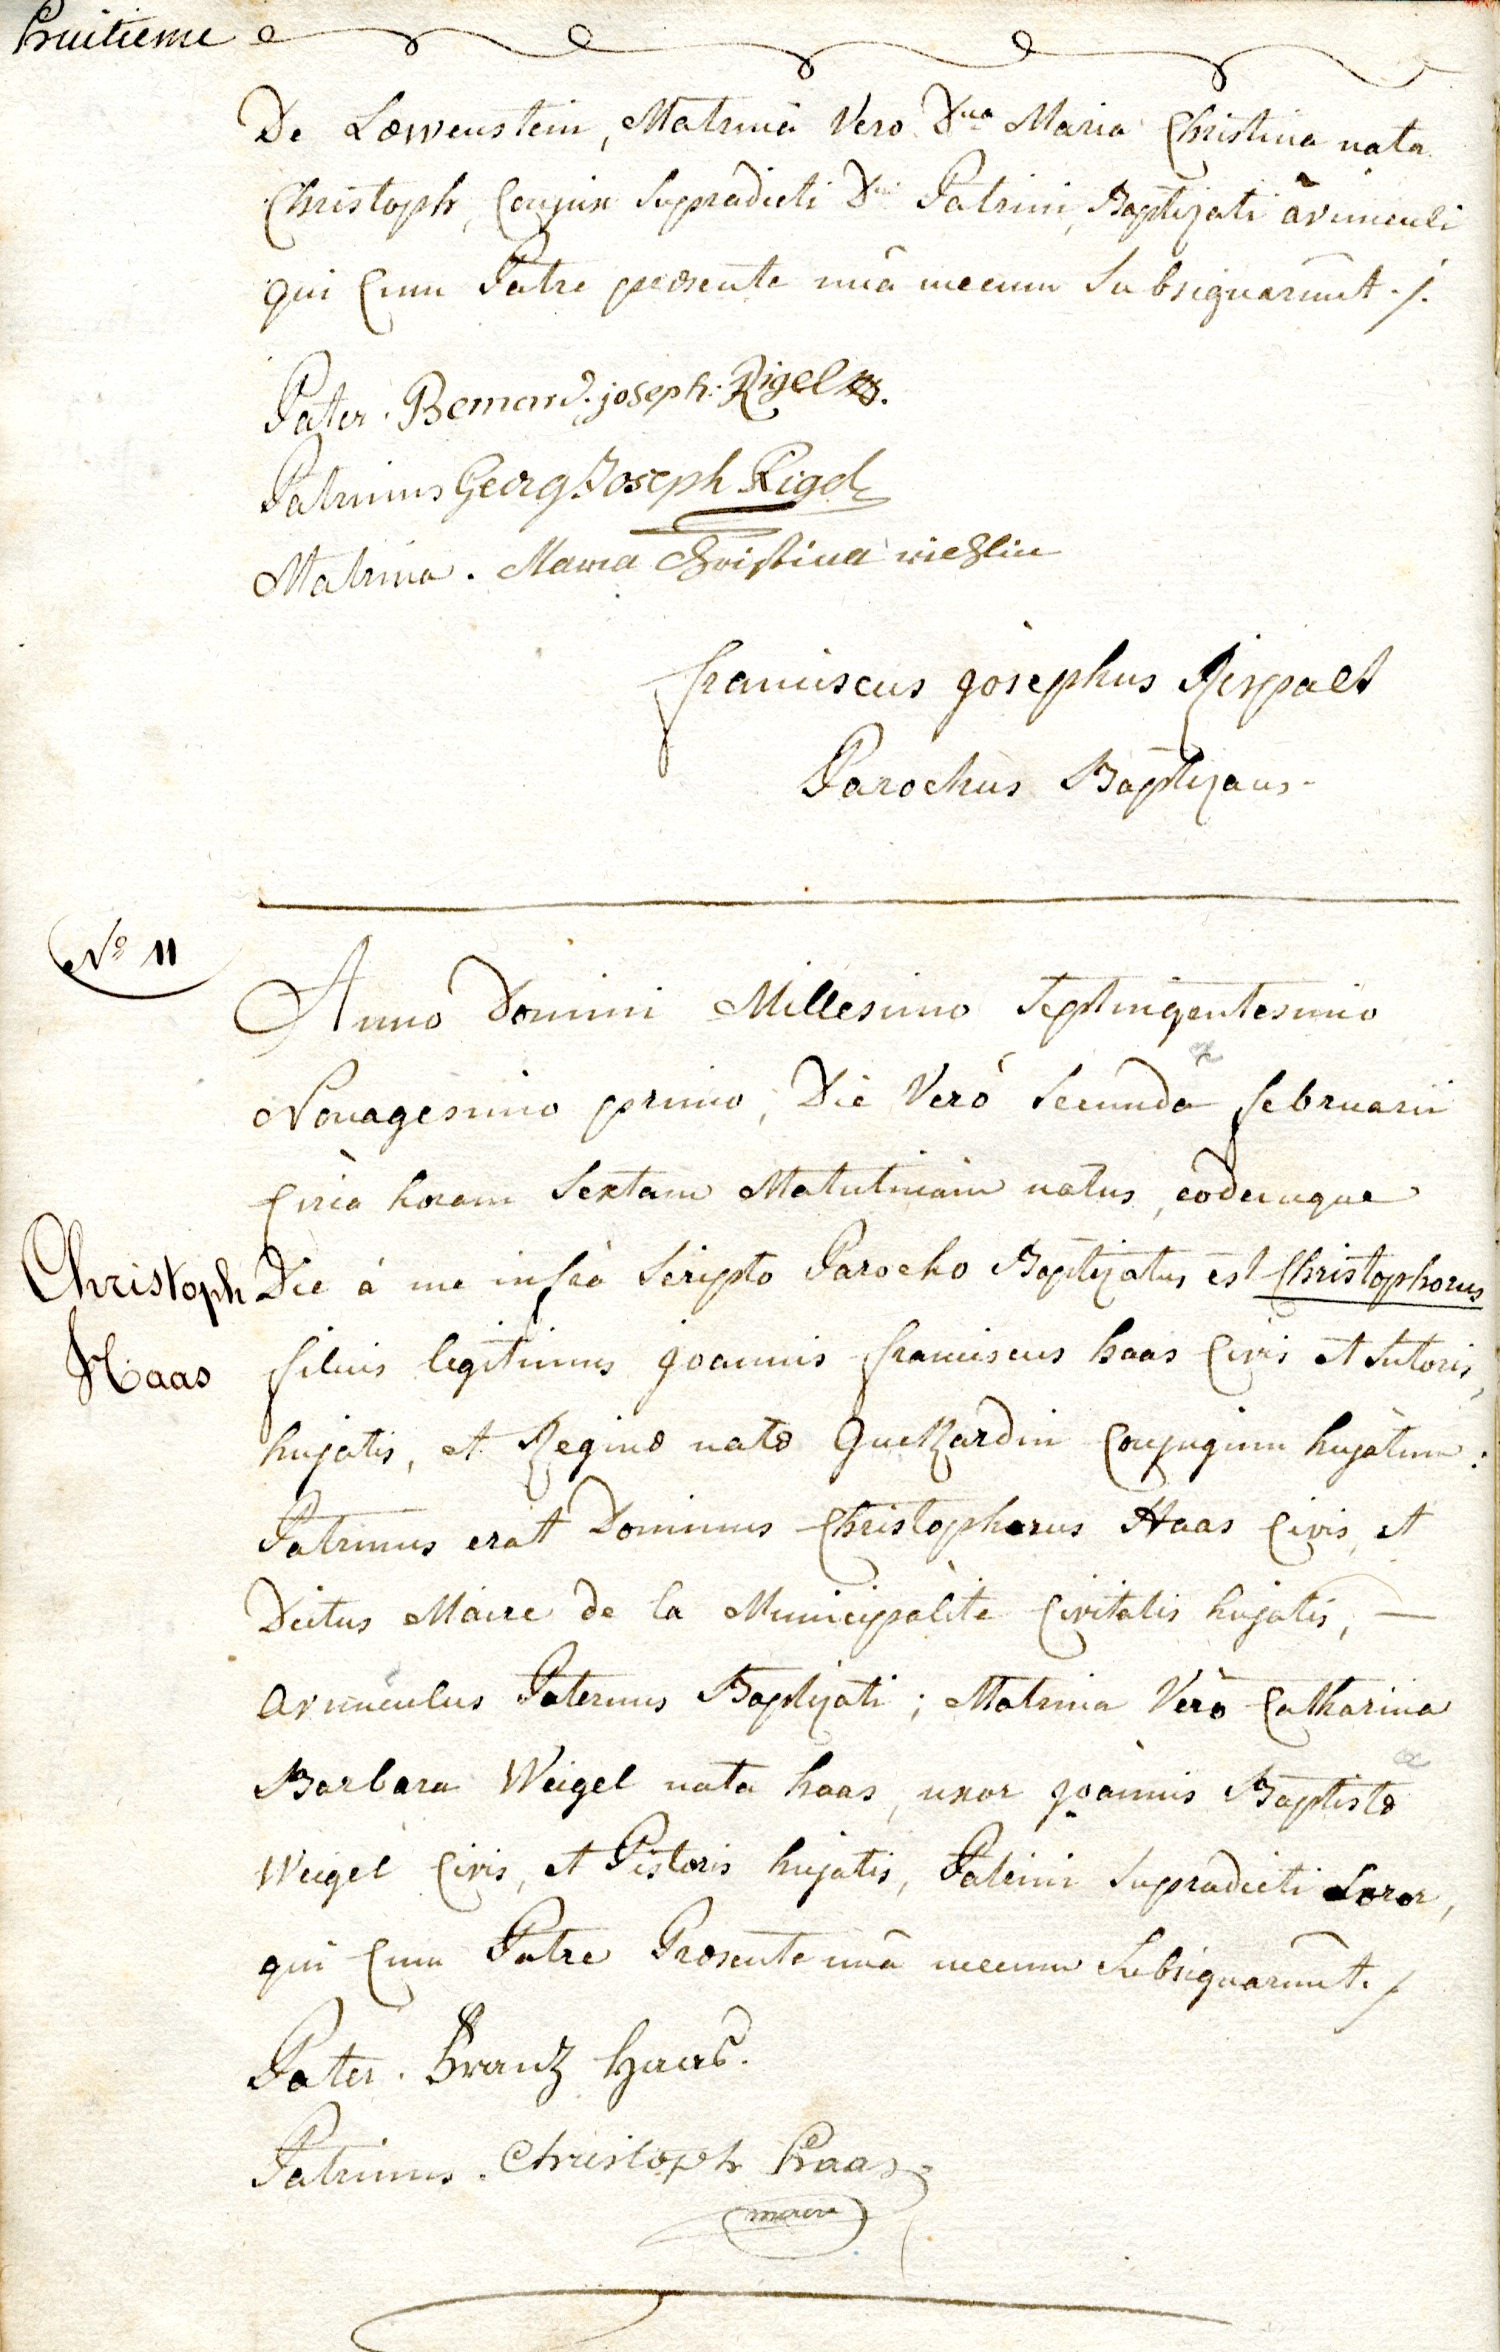 huitieme
De Loewenstein, Matrina Vero Dna Maria Christina nata
Christoph, Conjux Supradicti Dni Patrini, Baptizati avunculi
qui Cum Patre præsente unà mecum Subsignarunt ./.
Pater. Bernard. joseph: Rigel
Patrinus Georg Joseph Rigel
Matrina. Maria Christina
franciscus josephus
Parochus Baptizans
No 11
Anno Domini Millesimo Septingentesimo
Nonagesimo primo, Die Verò Secundâ februarii
Circa horam Sextam Matutinam natus, eodemque
Christoph
Die à me infrà Scripto Parocho Baptizatus est Christophorus
Haas
filius legitimus joannis franciscus haas Civis et Sutoris,
hujatis, et Reginæ natæ Conjugum hujatum:
Patrinus erat Dominus Christophorus Haas Civis, et
Dictus Maire de la Municipalite Civitatis hujatis, —
avunculus Paternus Baptizati; Matrina Verò Catharina
Barbara Weigel nata haas, uxor joannis Baptistæ
Weigel Civis, et Pistoris hujatis, Patrini Supradicti Soror,
qui Cum Patre Præsente unà mecum Subsignarunt ./
Pater. Franz Haas.
Patrinus. Christoph haas
maire